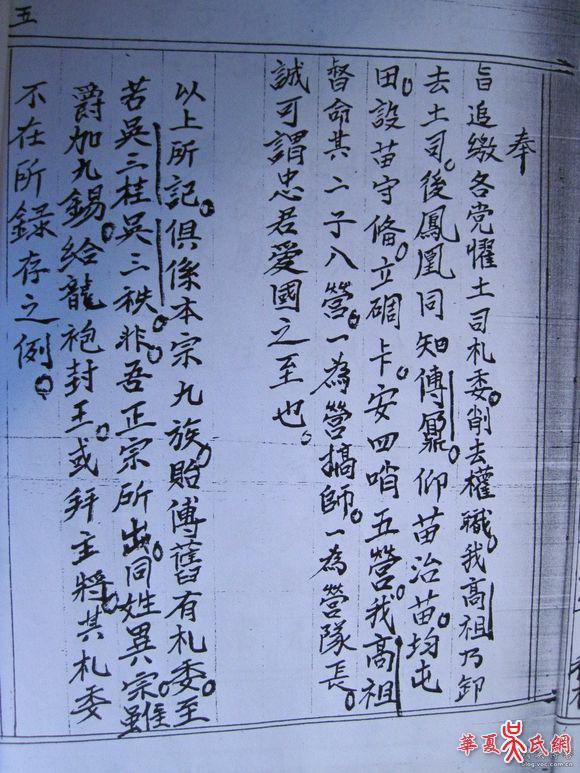 五
奉
旨追缴各党懼土司札委。削去權職。我高祖乃卸
去土司。後鳳凰同知傅鼐。仰苗治苗。均屯
田。設苗守俻。立碉卡。安四哨五營。我高祖
督命其二子入營。一為營搞師。一為營隊長。
誠可謂忠君愛國之至也。
以上所記。俱係本宗九族。貽傅舊有札委。至
若吳三桂吳三秩。非吾正宗所出。同姓異宗。雖
爵加九錫。給龍袍封王。或拜主將。其札委
不在所録存之例。
華夏吴氏網
blog.voc.com.cn